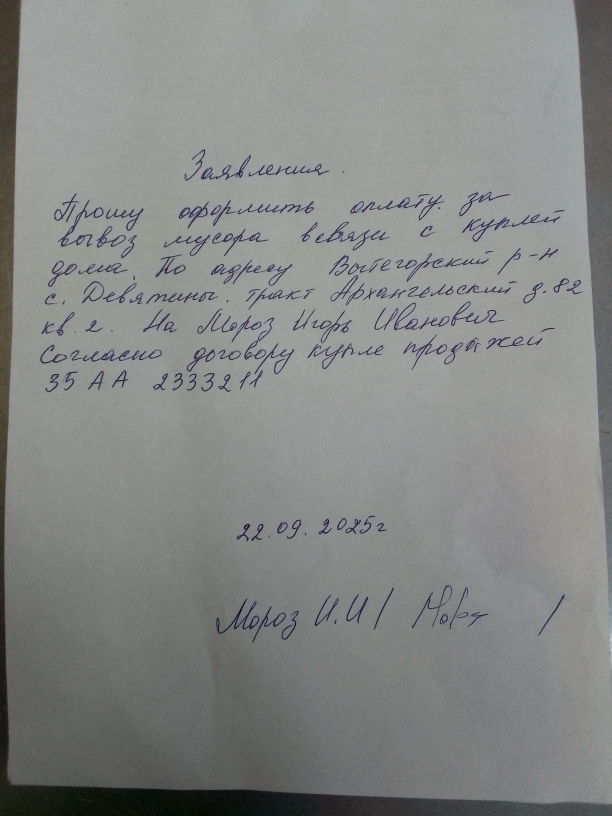 Заявления.
Прошу оформить оплату за
вывоз мусора всвязи с куплей
дома. По адресу Вытегорский р-н
с. Девятины. тракт Архангельский д. 82
кв. 2. На Мороз Игорь Иванович
Согласно договору купле продажей
35 АА 2333211
22.09.2025г
Мороз И.И / /